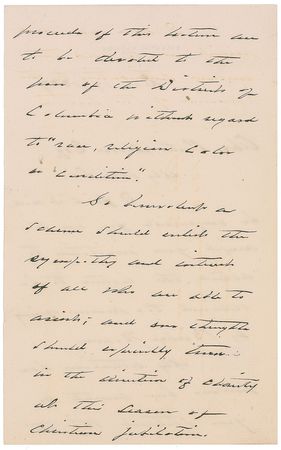 proceeds of this lecture are
to be devoted to the
poor of the District of
Columbia without regard
to "race, religion Color
or Condition".
So benevolent a
scheme should enlist the
sympathy and interest
of all who are able to
assist; and our thoughts
should especially turn
in the direction of charity
at this season of
Christian jubilation.